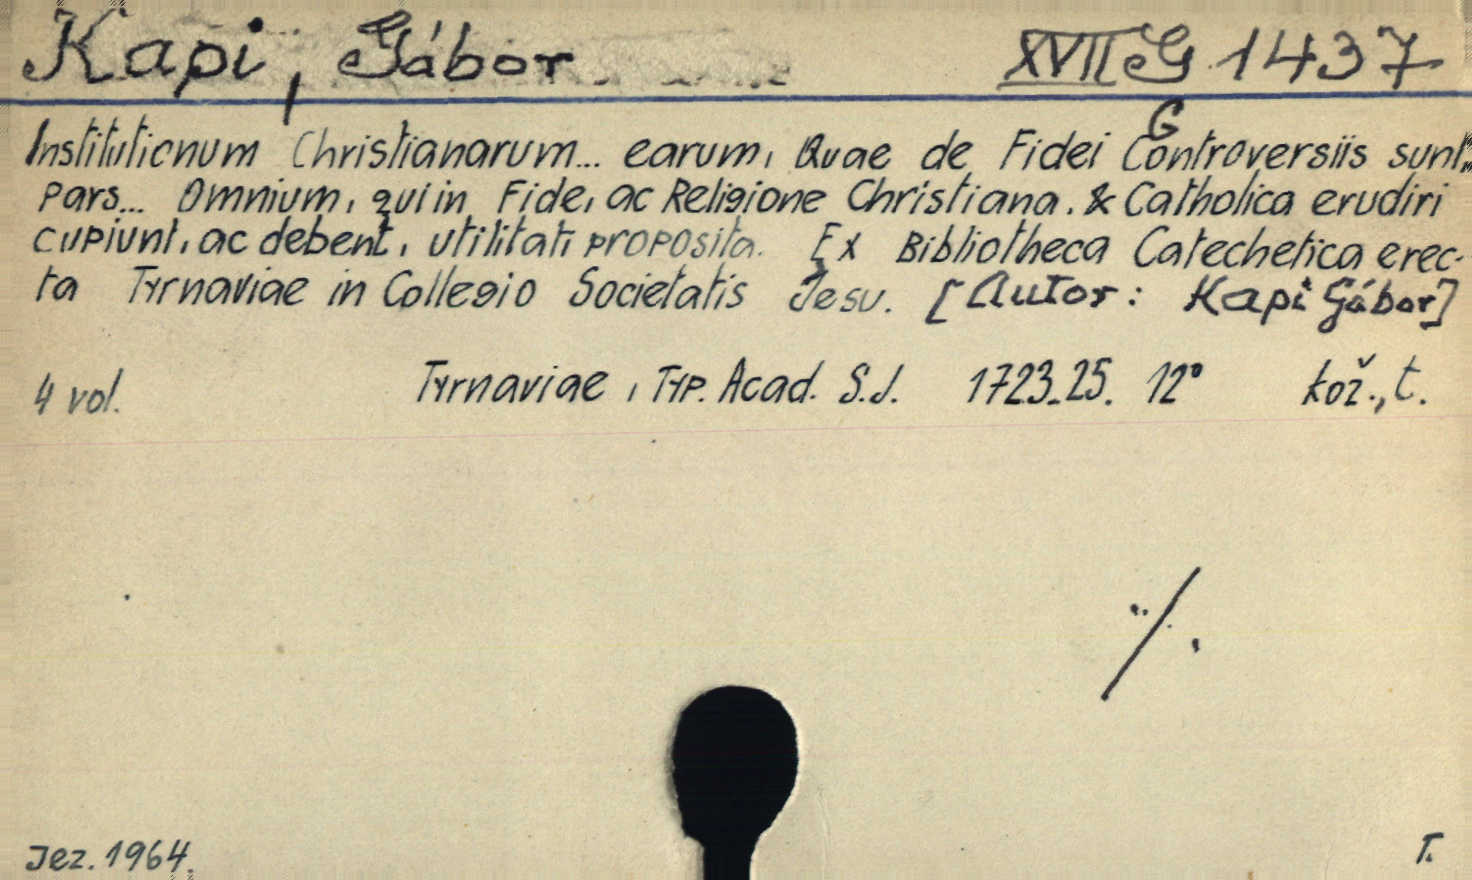 Kapi, Gábor
XVII G 1437
G
Institutionum Christianarum... earum, Quae de Fidei Controversiis sunt,
Pars... Omnium, qui in Fide, ac Religione Christiana. & Catholica erudiri
cupiunt, ac debent, utilitati proposita. Ex Bibliotheca Catechetica erec-
ta Tyrnaviae in Collegio Societatis Jesu. [Autor: Kapi Gábor]
4 vol. Tyrnaviae, Typ. Acad. S.J. 1723-25. 12° kož., t.
./.
Jez. 1964. T.